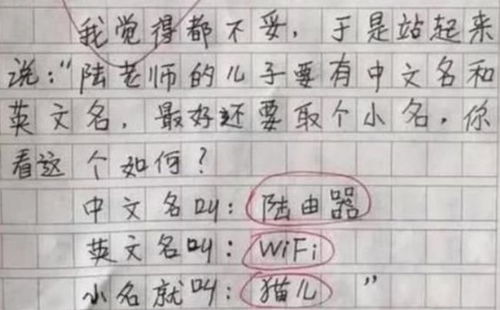 我觉得都不妥,于是站起来
说:“陆老师的儿子要有中文名和
英文名,最好还要取个小名,你
看这个如何?
中文名叫:陆由器
英文名叫:WiFi
小名就叫:猫儿”